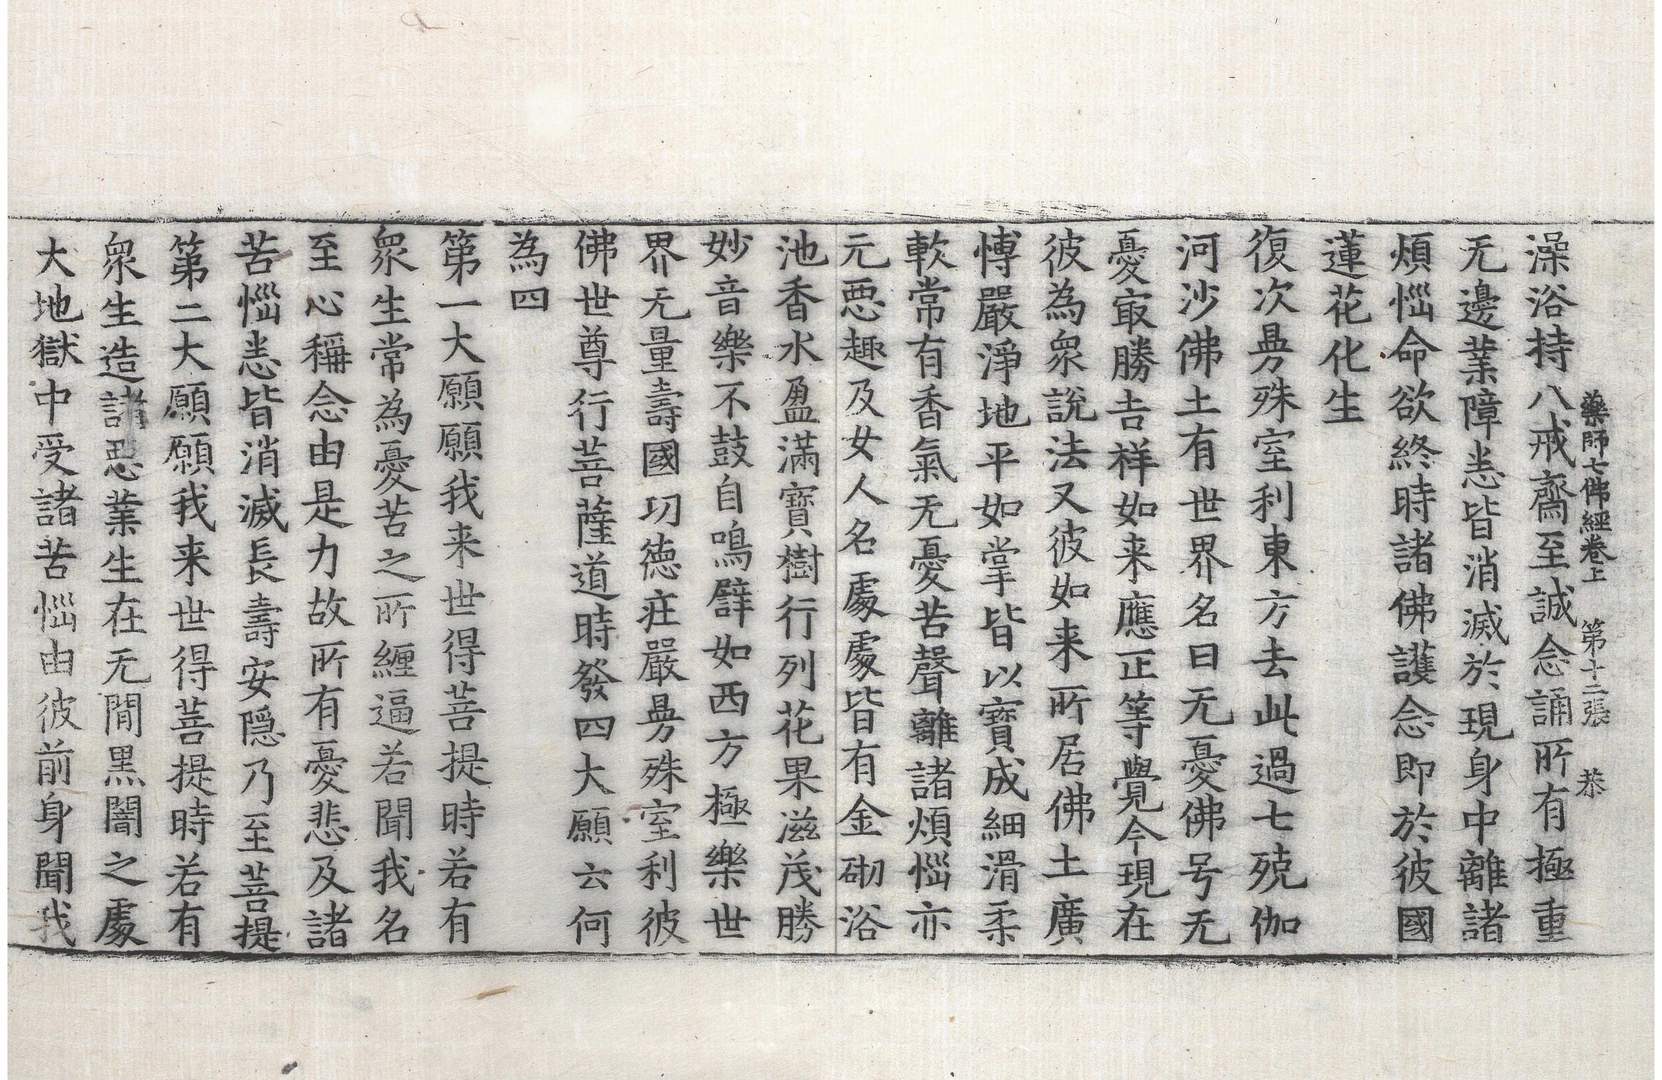 藥師七佛經卷上 第十二張 恭
澡浴持八戒齋至誠念誦所有極重
无邊業障悉皆消滅於現身中離諸
煩惱命欲終時諸佛護念即於彼國
蓮花化生
復次曼殊室利東方去此過七殑伽
河沙佛土有世界名曰无憂佛号无
憂㝡勝吉祥如来應正等覺今現在
彼為衆說法又彼如来所居佛土廣
博嚴淨地平如掌皆以寶成細滑柔
軟常有香氣无憂苦聲離諸煩惱亦
无惡趣及女人名處處皆有金砌浴
池香水盈滿寶樹行列花果滋茂勝
妙音樂不鼓自鳴譬如西方極樂世
界无量壽國功德莊嚴曼殊室利彼
佛世尊行菩薩道時發四大願云何
為四
第一大願願我来世得菩提時若有
衆生常為憂苦之所纏逼若聞我名
至心稱念由是力故所有憂悲及諸
苦惱悉皆消滅長壽安隱乃至菩提
第二大願願我来世得菩提時若有
衆生造諸惡業生在无間黑闇之處
大地獄中受諸苦惱由彼前身聞我